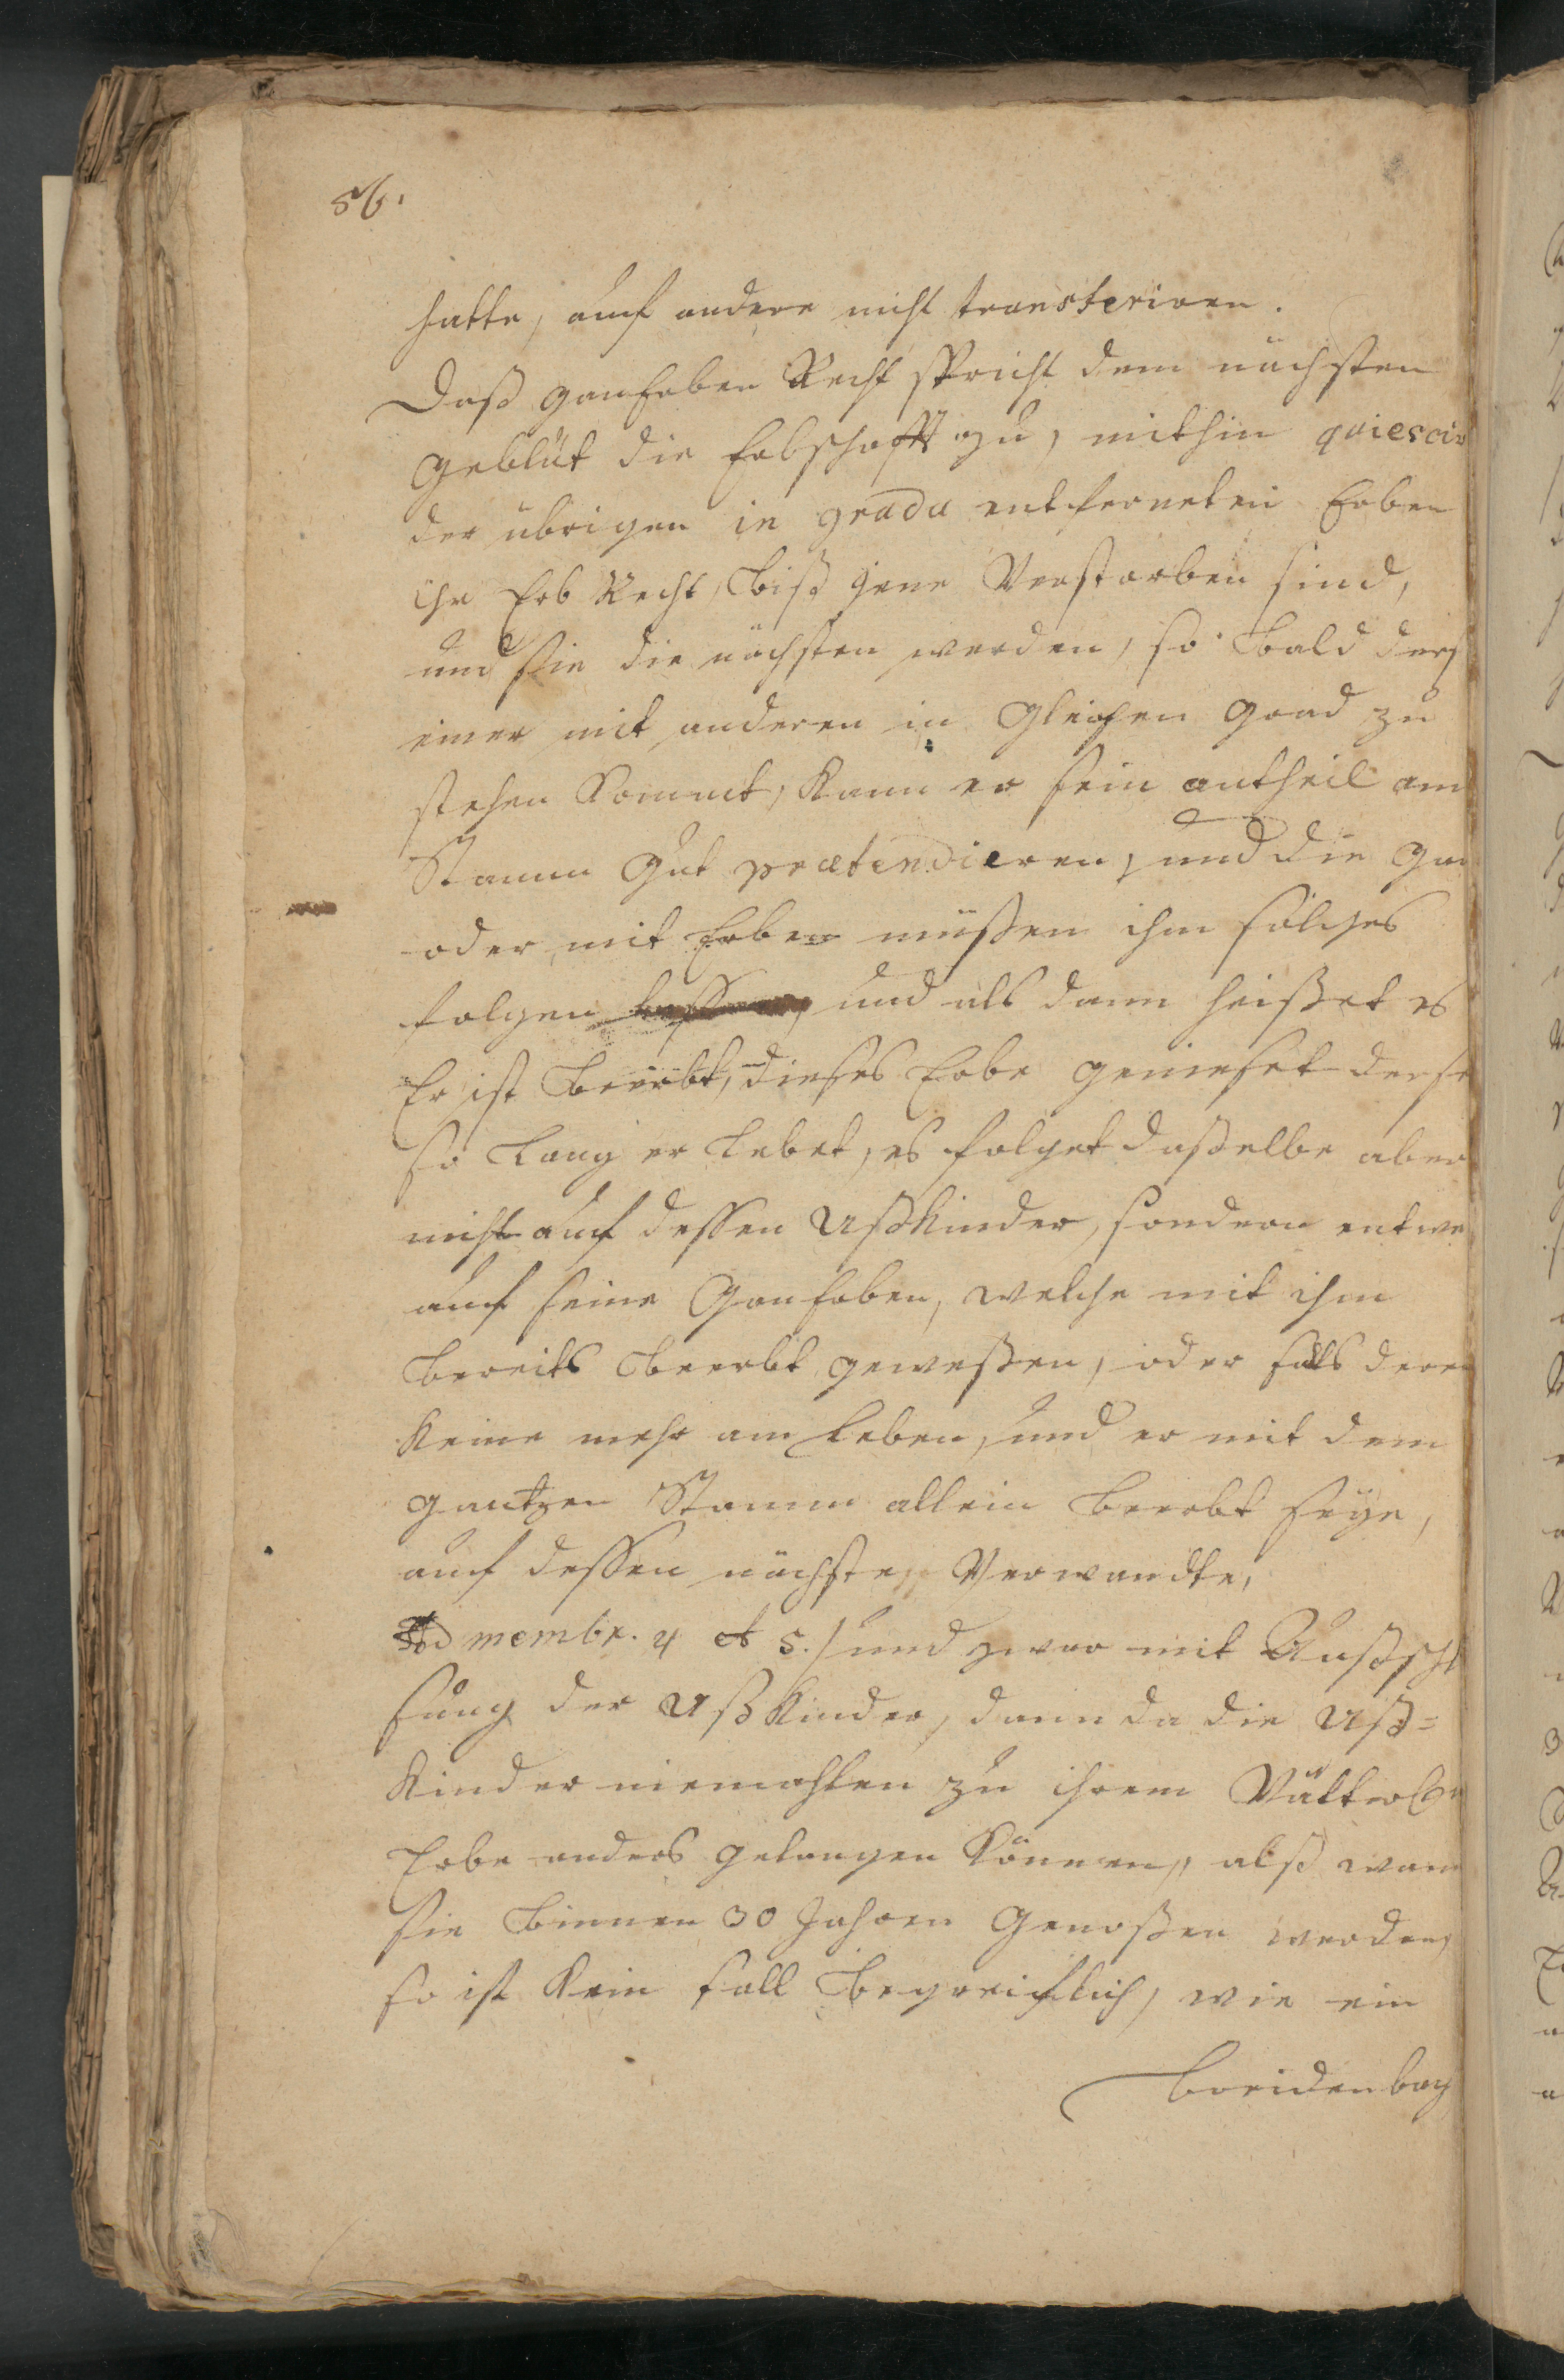 56.
hatte, auf andere nicht transferiren.
Daß ganherben Recht spricht dem nächsten
geblüt die Erbschafft zu, mithin quiescir
der übrigen in gradu entferneten Erben
ihr Erb Recht, biß jene Verstorben sind,
und sie die nächsten werden, so bald ders
einer mit anderen in gleichen grad zu
stehen kommt, kann er sein antheil am
Stamm Gut praetendieren, und die gan
oder mit Erben müßen ihm solches
folgen lassen, und als dann heisset es
Er ist beerbt, dieses Erbe genieset derse
so lang er lebet, es folget daßelbe aber
nicht auf dessen Ußkinder, sondern entwe
auf seine Ganherben, welche mit ihm
bereits beerbt geweßen, oder falls deren
keine mehr am Leben, und er mit dem
gantzen Stamm allein beerbt seye,
auf dessen nächste Verwandte,
Ad membr. 4 et 5. / und zwar mit Außschl
sung der Ußkinder, dann da die Uß=
kinder niemahlen zu ihrem Vätterl
Erbe anders gelangen können, alß wan
sie binnen 30 Jahren Genoßen werden,
so ist kein fall begreiflich, wie ein
Breidenbach